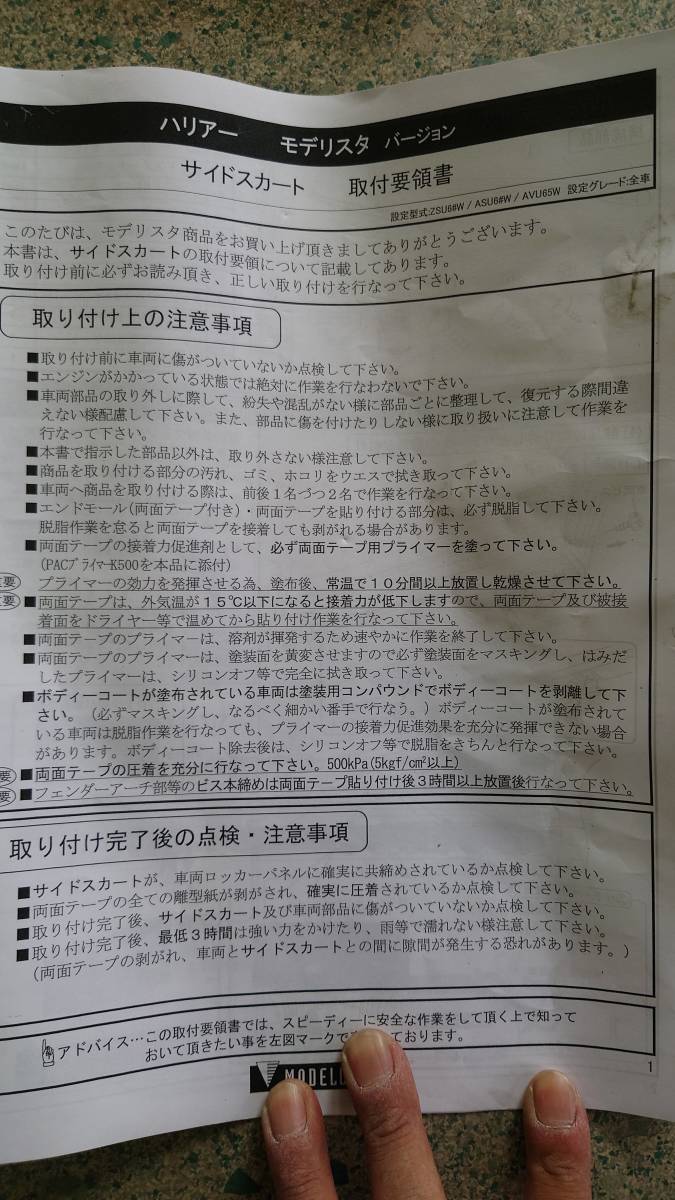 ハリアー モデリスタ バージョン
サイドスカート 取付要領書
設定型式:ZSU6#W / ASU6#W / AVU65W 設定グレード:全車
このたびは、モデリスタ商品をお買い上げ頂きましてありがとうございます。
本書は、サイドスカートの取付要領について記載してあります。
取り付け前に必ずお読み頂き、正しい取り付けを行なって下さい。
取り付け上の注意事項
■取り付け前に車両に傷がついていないか点検して下さい。
■エンジンがかかっている状態では絶対に作業を行なわないで下さい。
■車両部品の取り外しに際して、紛失や混乱がない様に部品ごとに整理して、復元する際間違
えない様配慮して下さい。また、部品に傷を付けたりしない様に取り扱いに注意して作業を
行なって下さい。
■本書で指示した部品以外は、取り外さない様注意して下さい。
■商品を取り付ける部分の汚れ、ゴミ、ホコリをウエスで拭き取って下さい。
■車両へ商品を取り付ける際は、前後1名づつ2名で作業を行なって下さい。
■エンドモール(両面テープ付き)・両面テープを貼り付ける部分は、必ず脱脂して下さい。
脱脂作業を怠ると両面テープを接着しても剥がれる場合があります。
■両面テープの接着力促進剤として、必ず両面テープ用プライマーを塗って下さい。
(PACプライマーK500を本品に添付)
要 プライマーの効力を発揮させる為、塗布後、常温で10分間以上放置し乾燥させて下さい。
要 ■両面テープは、外気温が15℃以下になると接着力が低下しますので、両面テープ及び被接
着面をドライヤー等で温めてから貼り付け作業を行なって下さい。
■両面テープのプライマーは、溶剤が揮発するため速やかに作業を終了して下さい。
■両面テープのプライマーは、塗装面を黄変させますので必ず塗装面をマスキングし、はみだ
したプライマーは、シリコンオフ等で完全に拭き取って下さい。
■ボディーコートが塗布されている車両は塗装用コンパウンドでボディーコートを剥離して下
さい。(必ずマスキングし、なるべく細かい番手で行なう。)ボディーコートが塗布されて
いる車両は脱脂作業を行なっても、プライマーの接着力促進効果を充分に発揮できない場合
があります。ボディーコート除去後は、シリコンオフ等で脱脂をきちんと行なって下さい。
要 ■両面テープの圧着を充分に行なって下さい。500kPa(5kgf/cm²以上)
要 ■フェンダーアーチ部等のビス本締めは両面テープ貼り付け後3時間以上放置後行なって下さい。
取り付け完了後の点検・注意事項
■サイドスカートが、車両ロッカーパネルに確実に共締めされているか点検して下さい。
■両面テープの全ての離型紙が剥がされ、確実に圧着されているか点検して下さい。
■取り付け完了後、サイドスカート及び車両部品に傷がついていないか点検して下さい。
■取り付け完了後、最低3時間は強い力をかけたり、雨等で濡れない様注意して下さい。
(両面テープの剥がれ、車両とサイドスカートとの間に隙間が発生する恐れがあります。)
アドバイス…この取付要領書では、スピーディーに安全な作業をして頂く上で知って
おいて頂きたい事を左図マークで ております。
1